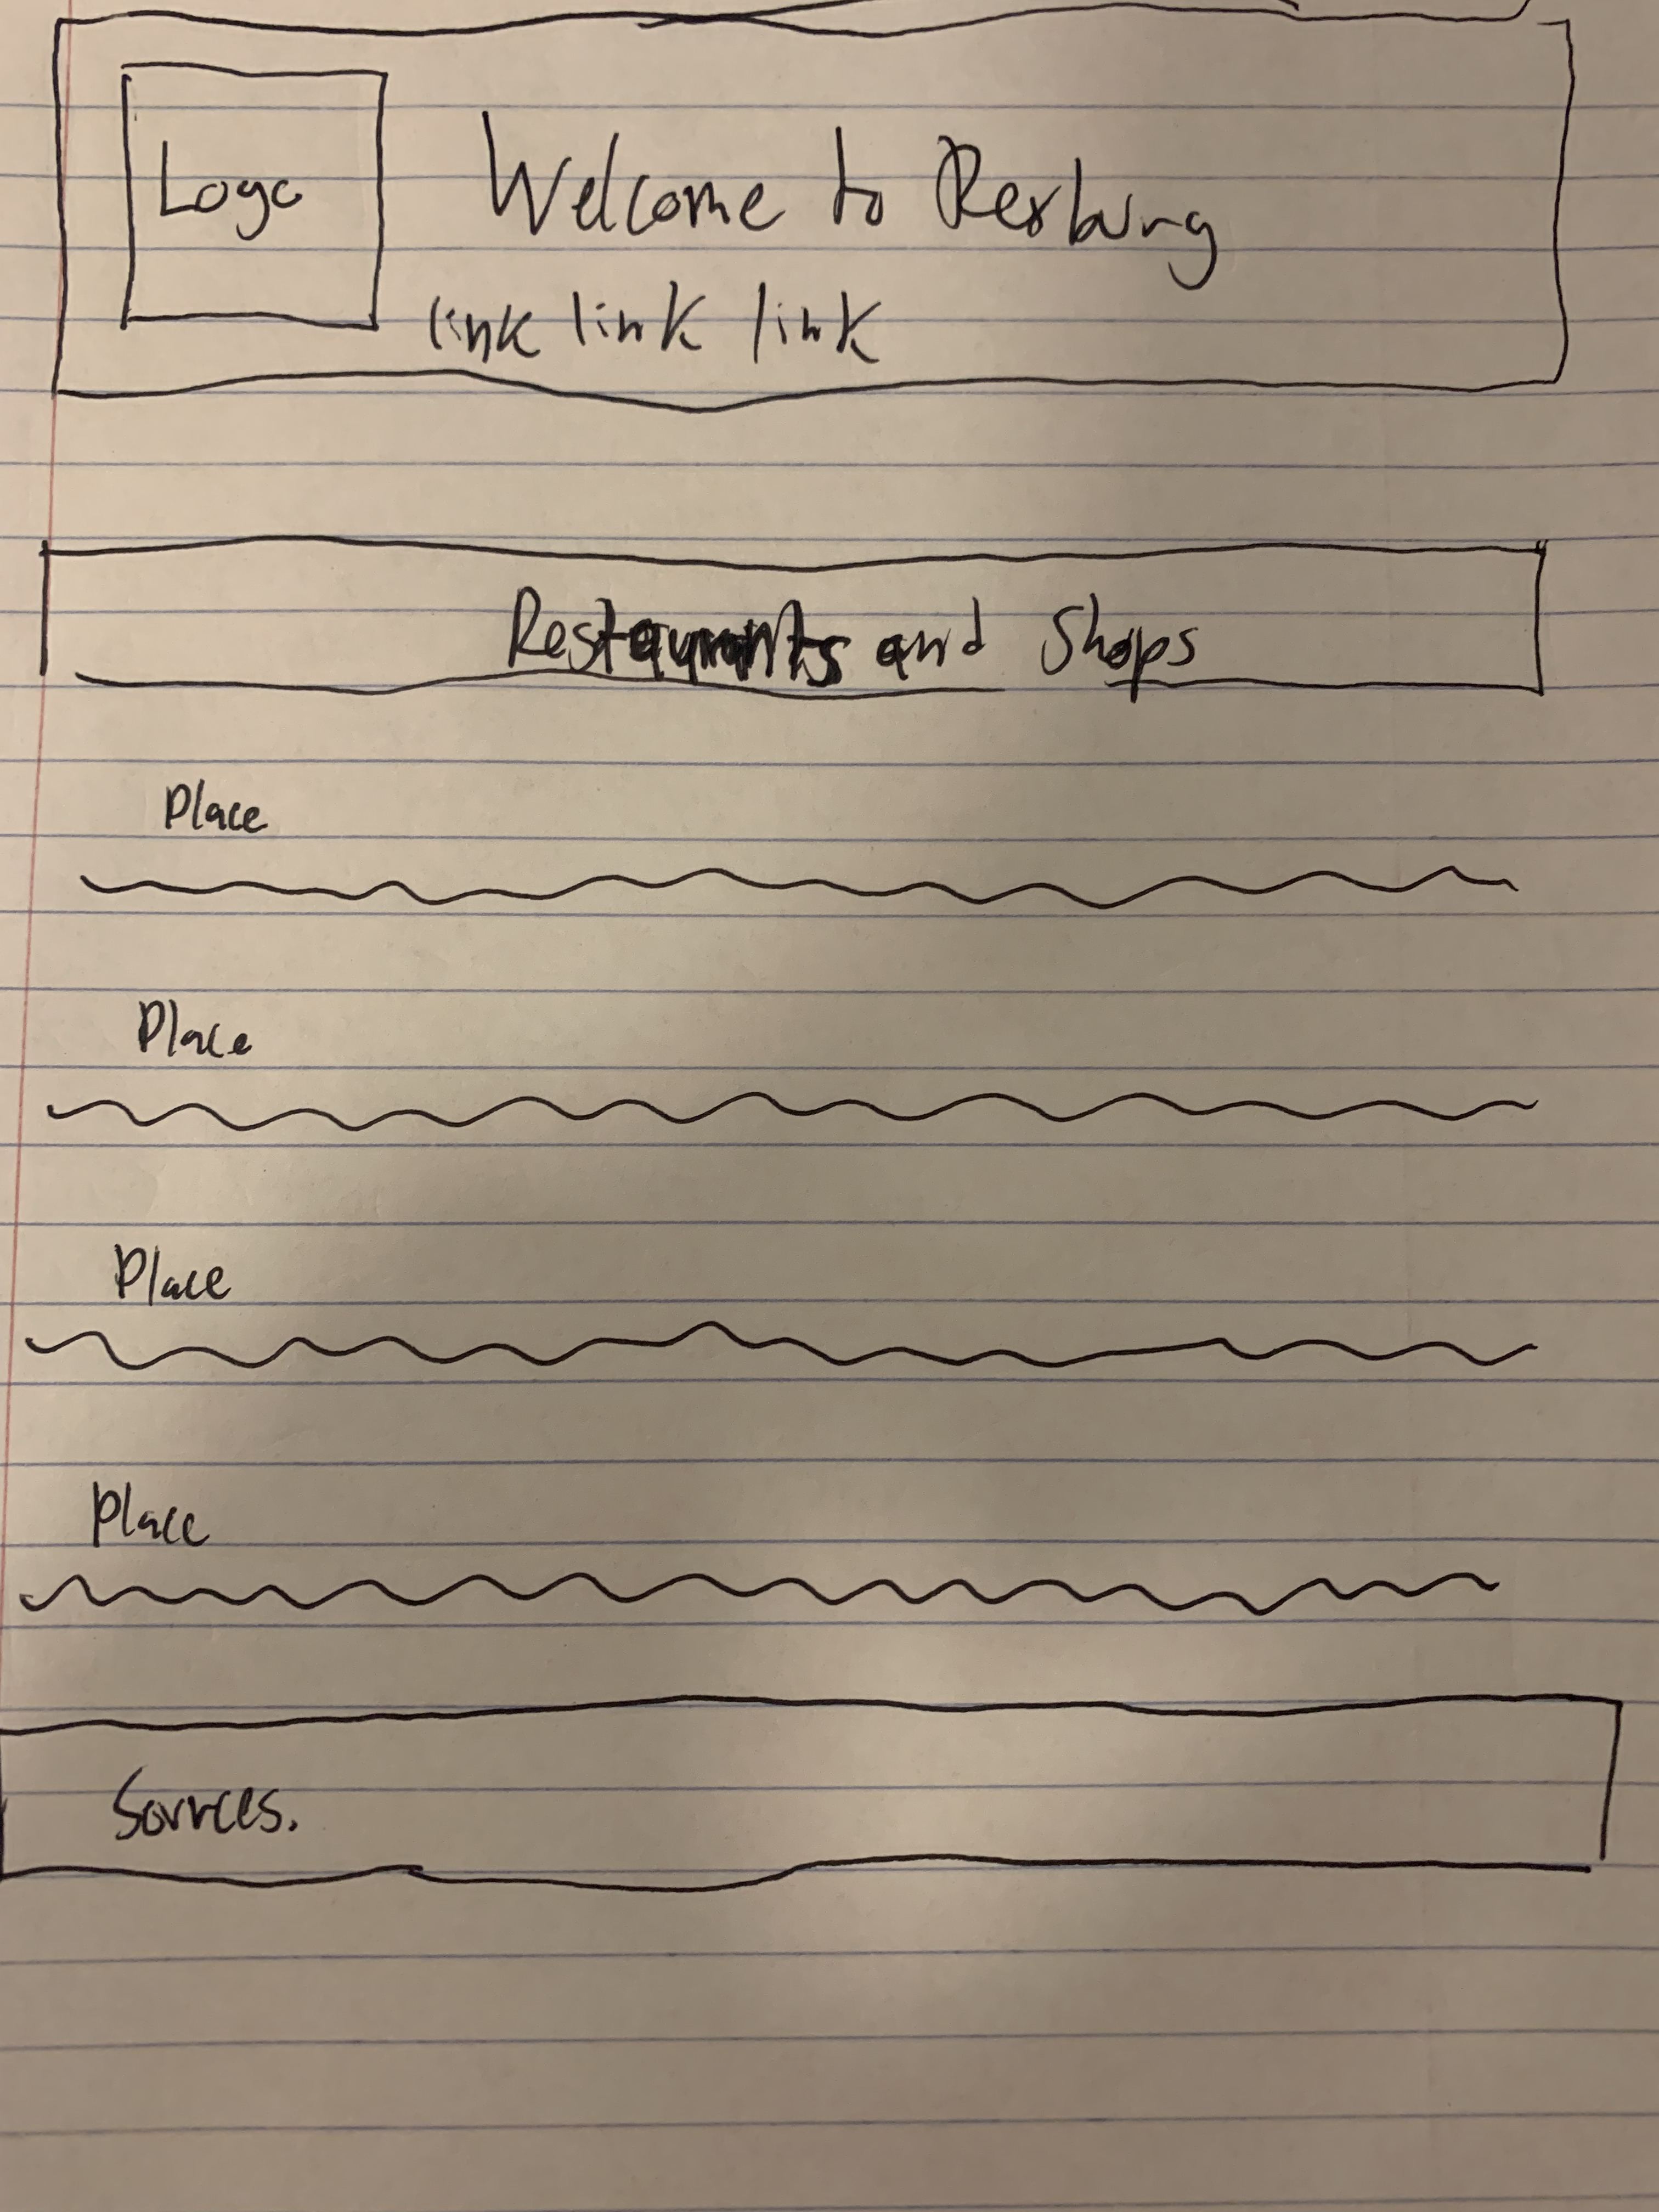 Logo
Welcome to Rexburg
link link link
Restaurants and Shops
Place
Place
Place
Place
Sources.